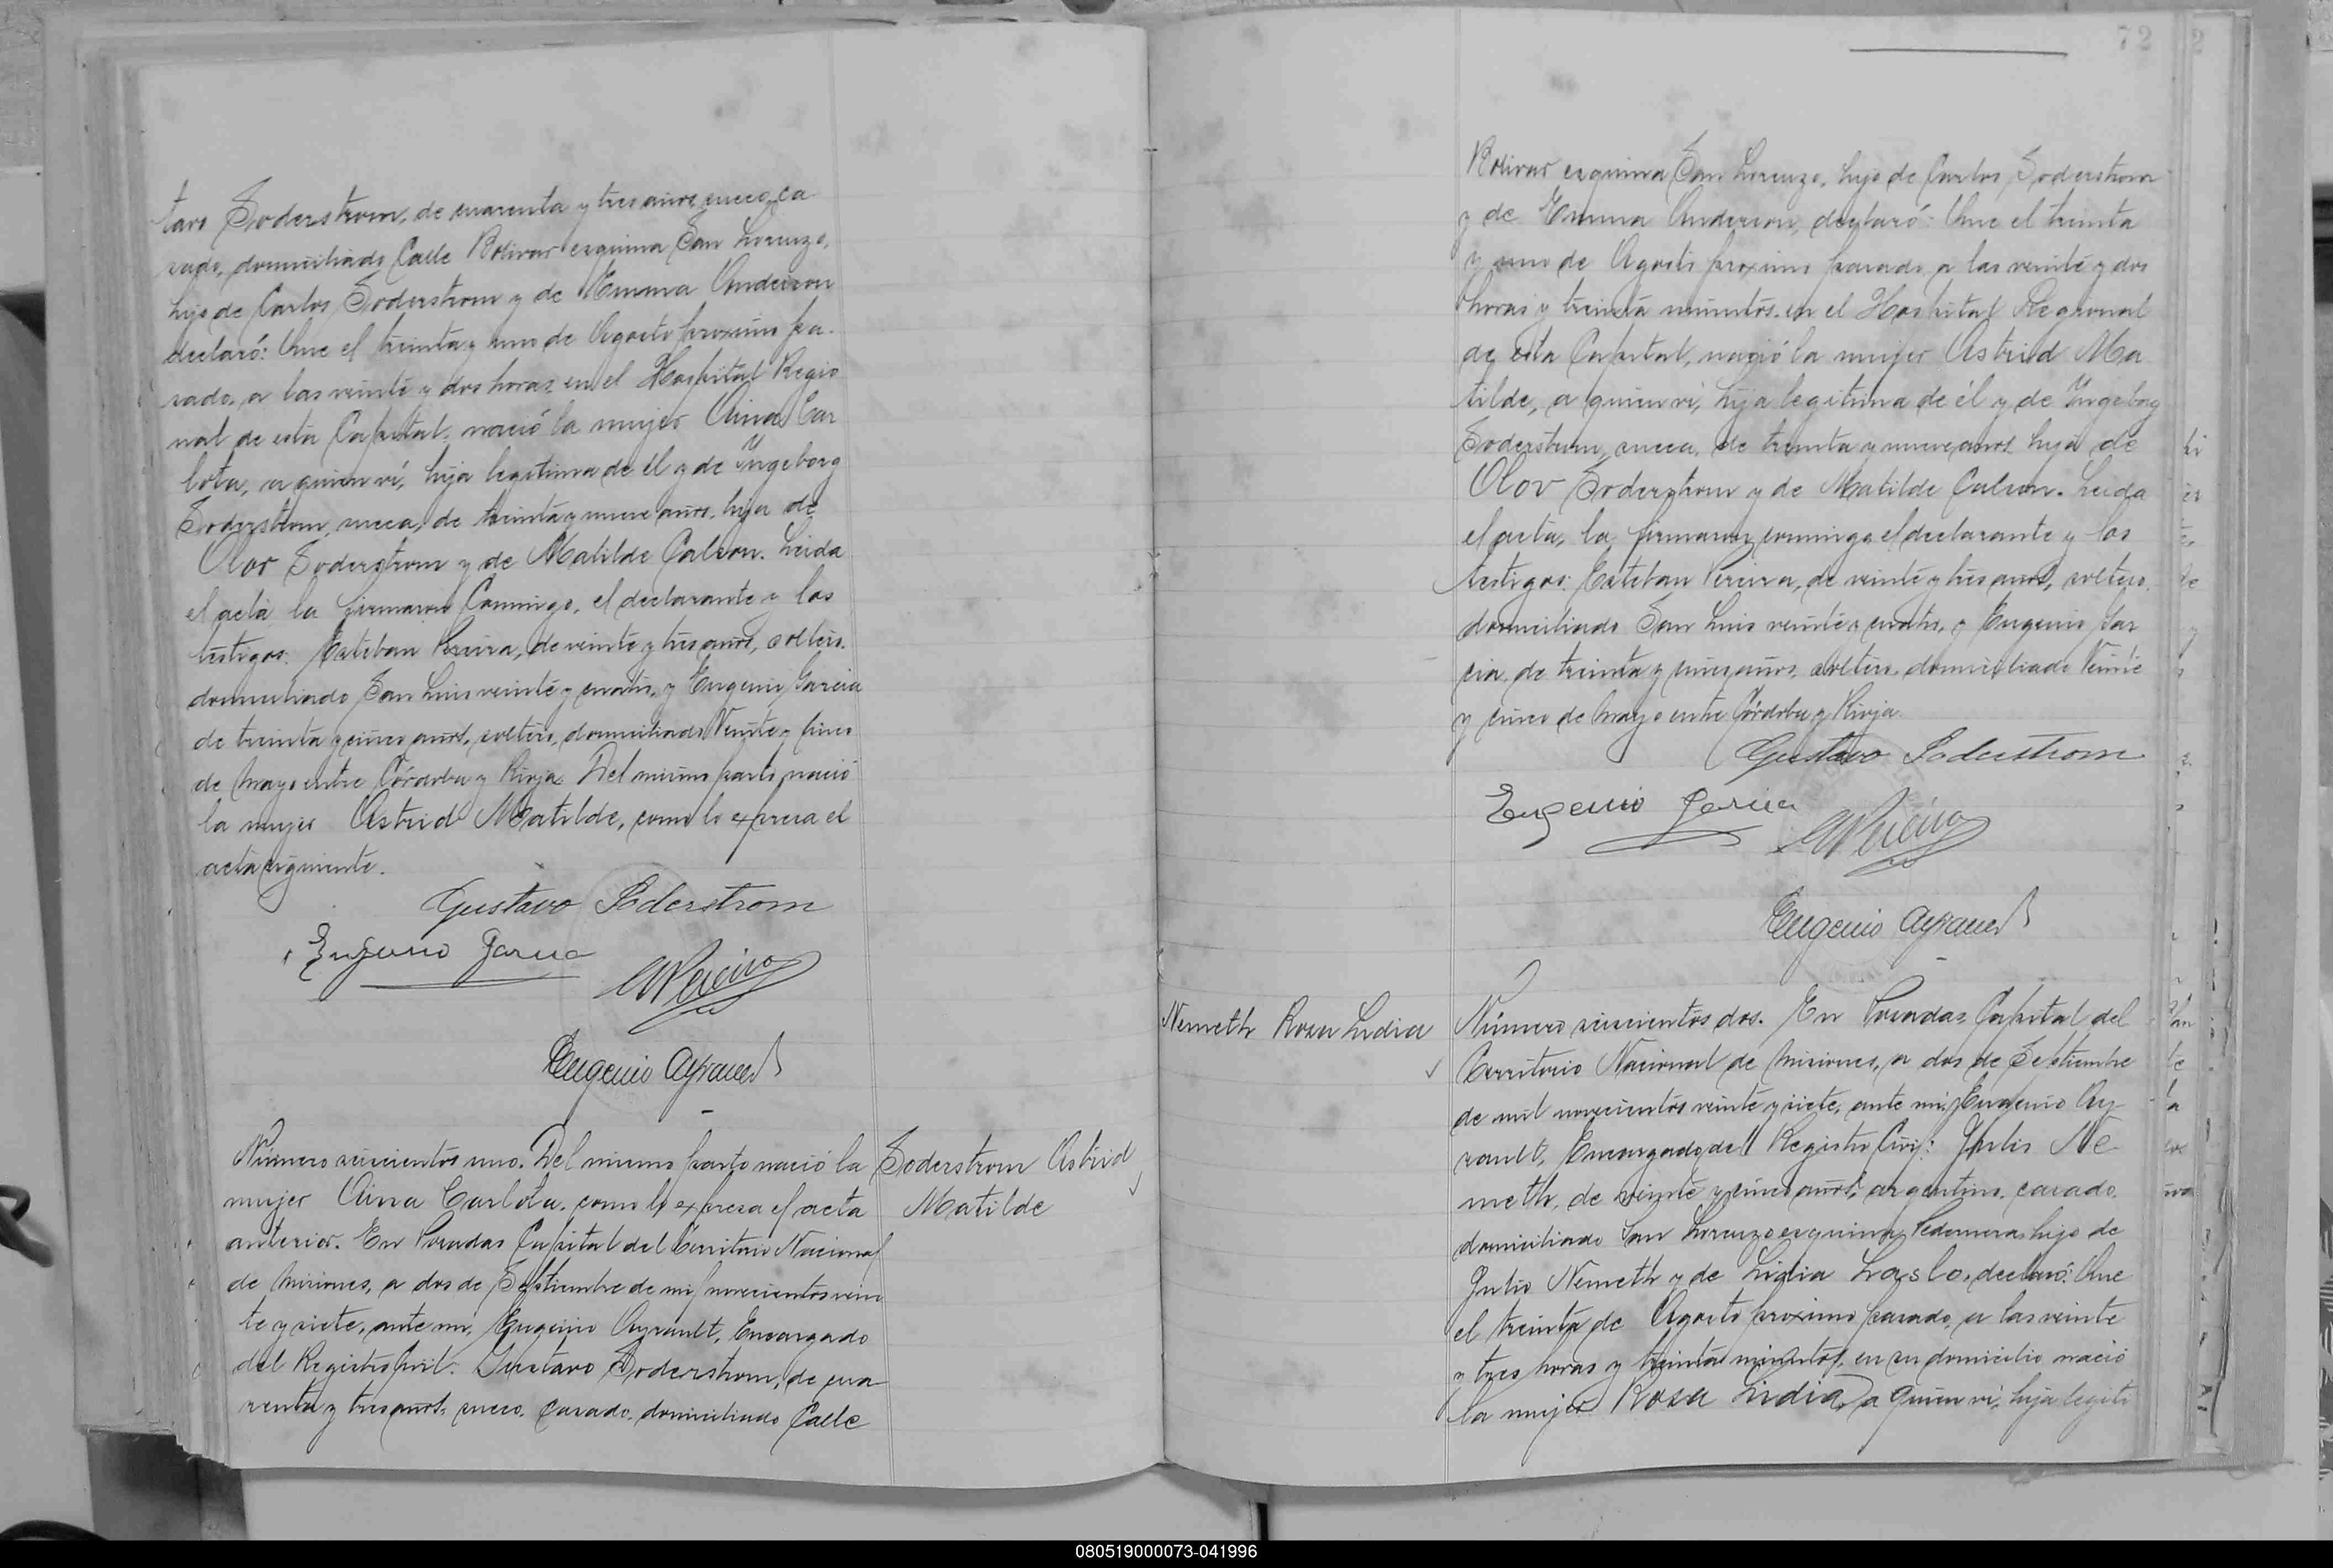 tavo Soderstrom, de cuarenta y tres años, sueco, ca
sado, domiciliado Calle Bolivar esquina San Lorenzo,
hijo de Carlos Soderstrom y de Emma Anderson
declaró: Que el treinta y uno de Agosto proximo pa-
sado, a las veinte y dos horas, en el Hospital Regio
nal de esta Capital, nació la mujer Aina Car
lota, a quien ví, hija legitima de él y de Yngeborg
Soderstrom, sueca, de treinta y nueve años, hija de
Olov Soderstrom y de Matilde Calson. Leida
el acta la firmaron conmigo, el declarante y los
testigos: Esteban Pereira, de veinte y tres años, soltero,
domiciliado San Luis veinte y cuatro, y Eugenio Garcia
de treinta y cinco años, soltero, domiciliado Veinte y cinco
de Mayo entre Córdoba y Rioja. Del mismo parto nació
la mujer Astrid Matilde, como lo expresa el
acta siguiente.
Gustavo Soderstrom
Eugenio Garcia
Pereira
Eugenio Ayrault
Número seiscientos uno. Del mismo parto nació la
mujer Aina Carlota, como lo expresa el acta
anterior. En Posadas Capital del Territorio Nacional
de Misiones, a dos de Septiembre de mil novecientos vein
te y siete, ante mí, Eugenio Ayrault, Encargado
del Registro Civil: Gustavo Soderstrom, de cua
renta y tres años, sueco, casado, domiciliado Calle
Soderstrom Astrid
Matilde
72
Bolivar esquina San Lorenzo, hijo de Carlos Soderstrom
y de Emma Anderson, declaró: Que el treinta
y uno de Agosto proximo pasado, a las veinte y dos
horas y treinta minutos, en el Hospital Regional
de esta Capital, nació la mujer Astrid Ma
tilde, a quien ví, hija legitima de él y de Yngeborg
Soderstrom, sueca, de treinta y nueve años, hija de
Olov Soderstrom y de Matilde Calson. Leida
el acta, la firmaron conmigo el declarante y los
testigos: Esteban Pereira, de veinte y tres años, soltero,
domiciliado San Luis veinte y cuatro, y Eugenio Gar
cia, de treinta y cinco años, soltero, domiciliado Veinte
y cinco de Mayo entre Córdoba y Rioja.
Gustavo Soderstrom
Eugenio Garcia
Pereira
Eugenio Ayrault
Nemeth Rosa Lidia
Número seiscientos dos. En Posadas Capital del
Territorio Nacional de Misiones, a dos de Septiembre
de mil novecientos veinte y siete, ante mi, Eugenio Ay
rault, Encargado del Registro Civil: Julio Ne
meth, de veinte y cinco años, argentino, casado,
domiciliado San Lorenzo esquina Pedernera, hijo de
Julio Nemeth y de Lidia Laslo, declaró: Que
el treinta de Agosto proximo pasado, a las veinte
y tres horas y treinta minutos, en su domicilio nació
la mujer Rosa Lidia, a quien ví, hija legiti
080519000073-041996